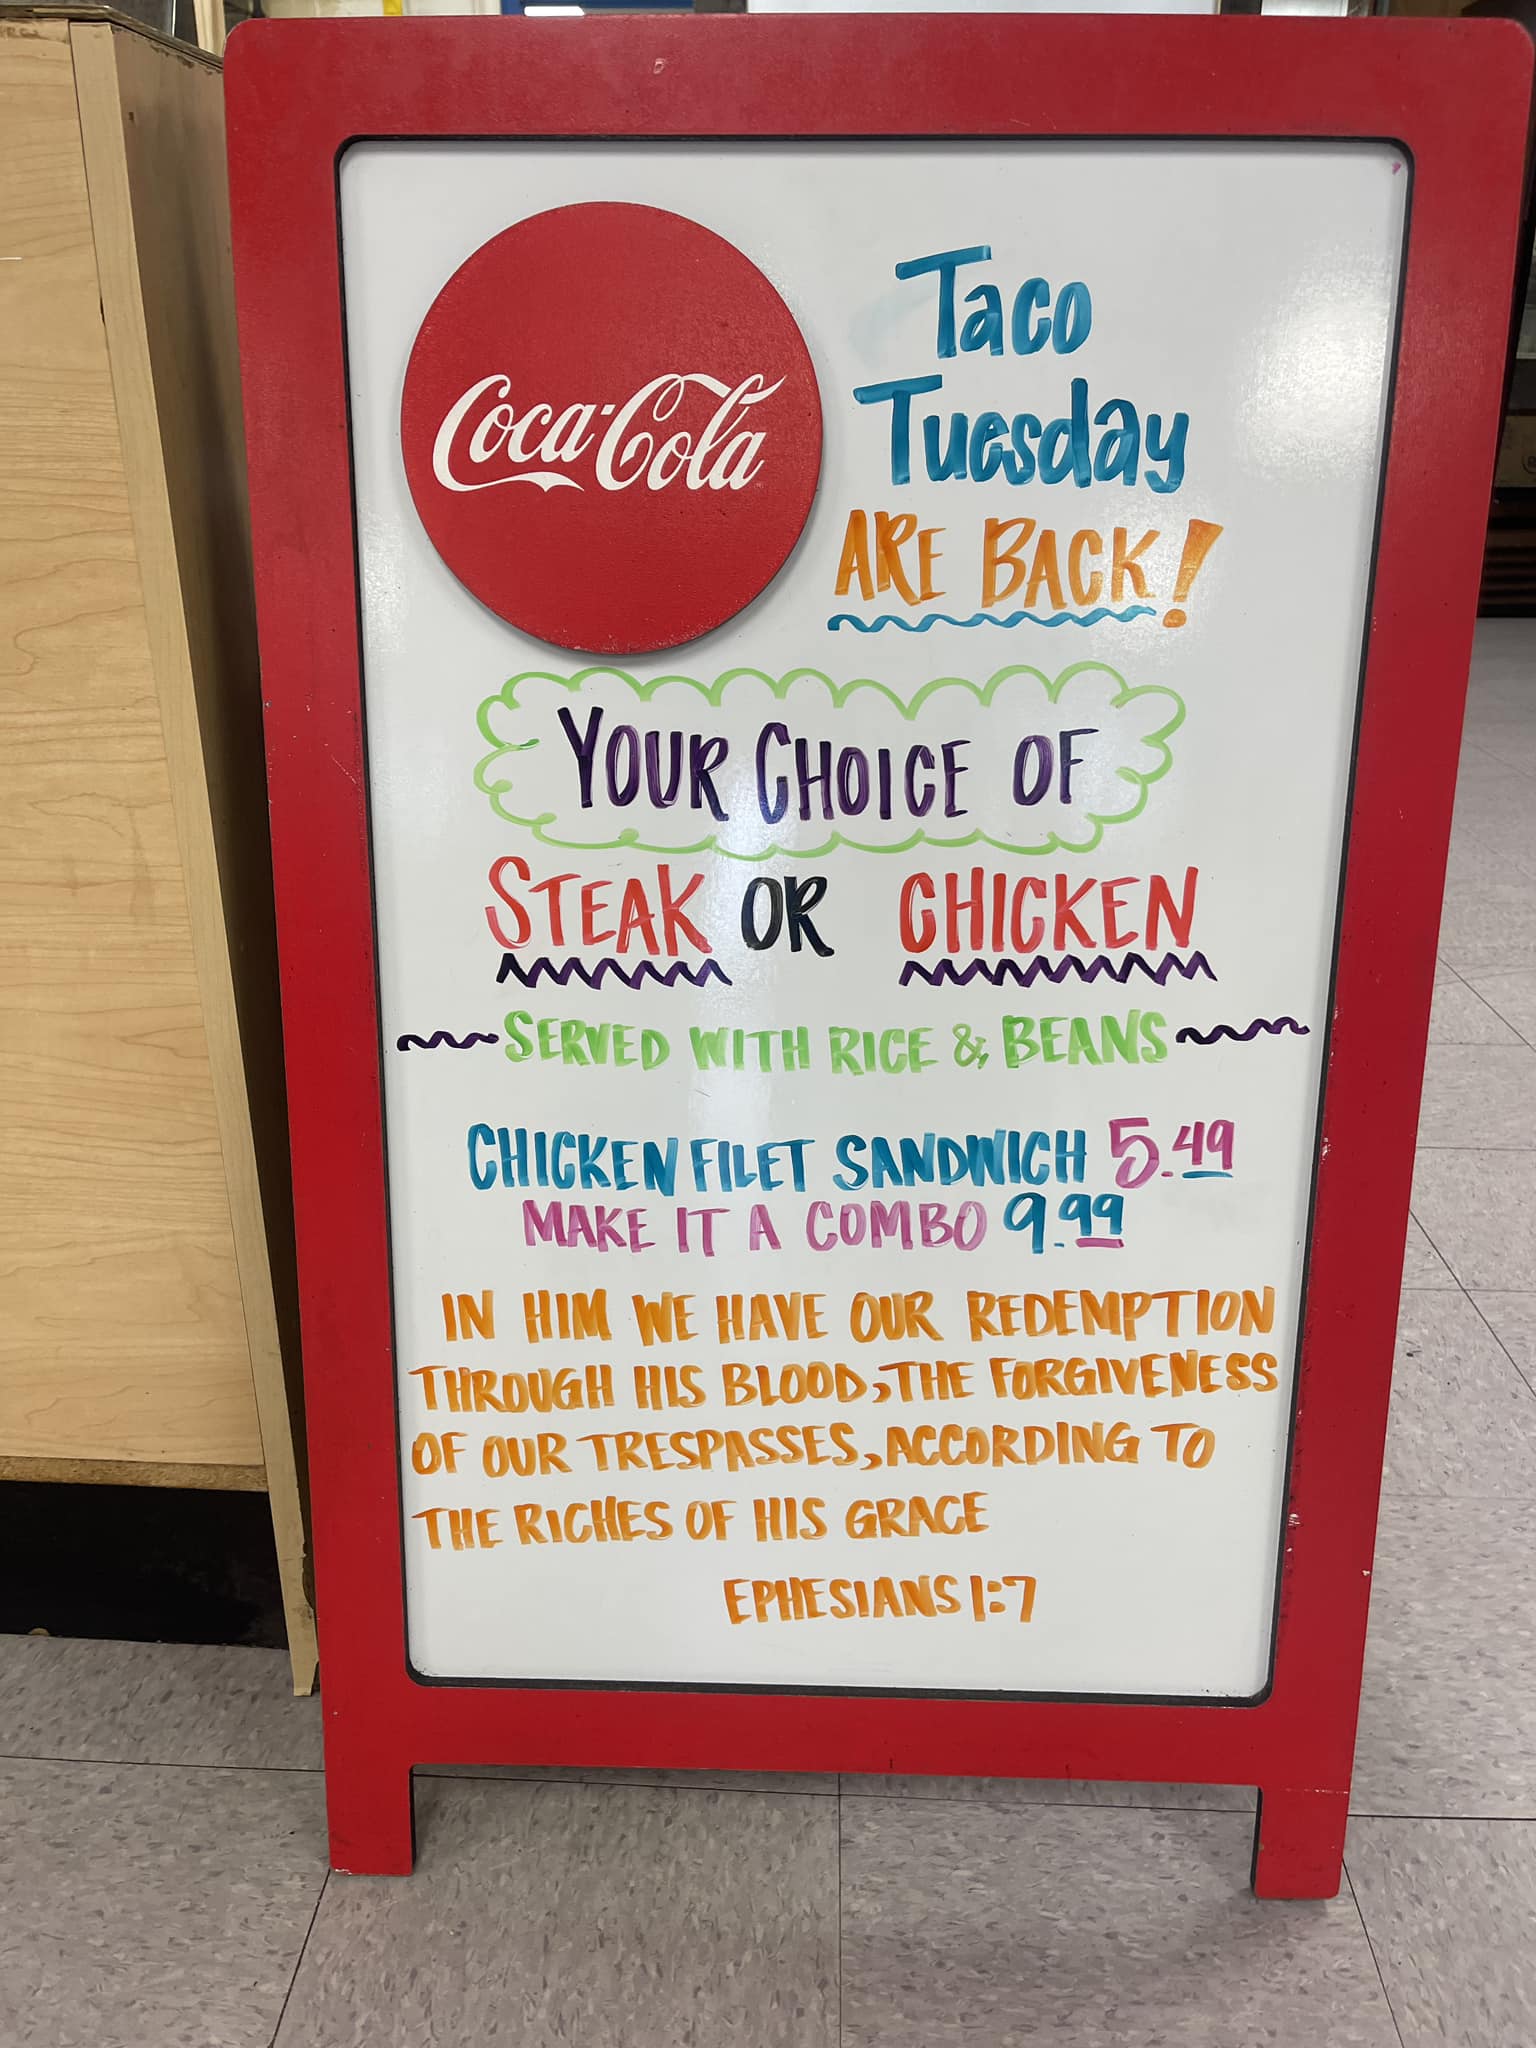 Coca-Cola
Taco
Tuesday
ARE BACK!
YOUR CHOICE OF
STEAK OR CHICKEN
SERVED WITH RICE & BEANS
CHICKEN FILET SANDWICH 5.49
MAKE IT A COMBO 9.99
IN HIM WE HAVE OUR REDEMPTION
THROUGH HIS BLOOD, THE FORGIVENESS
OF OUR TRESPASSES, ACCORDING TO
THE RICHES OF HIS GRACE
EPHESIANS 1:7